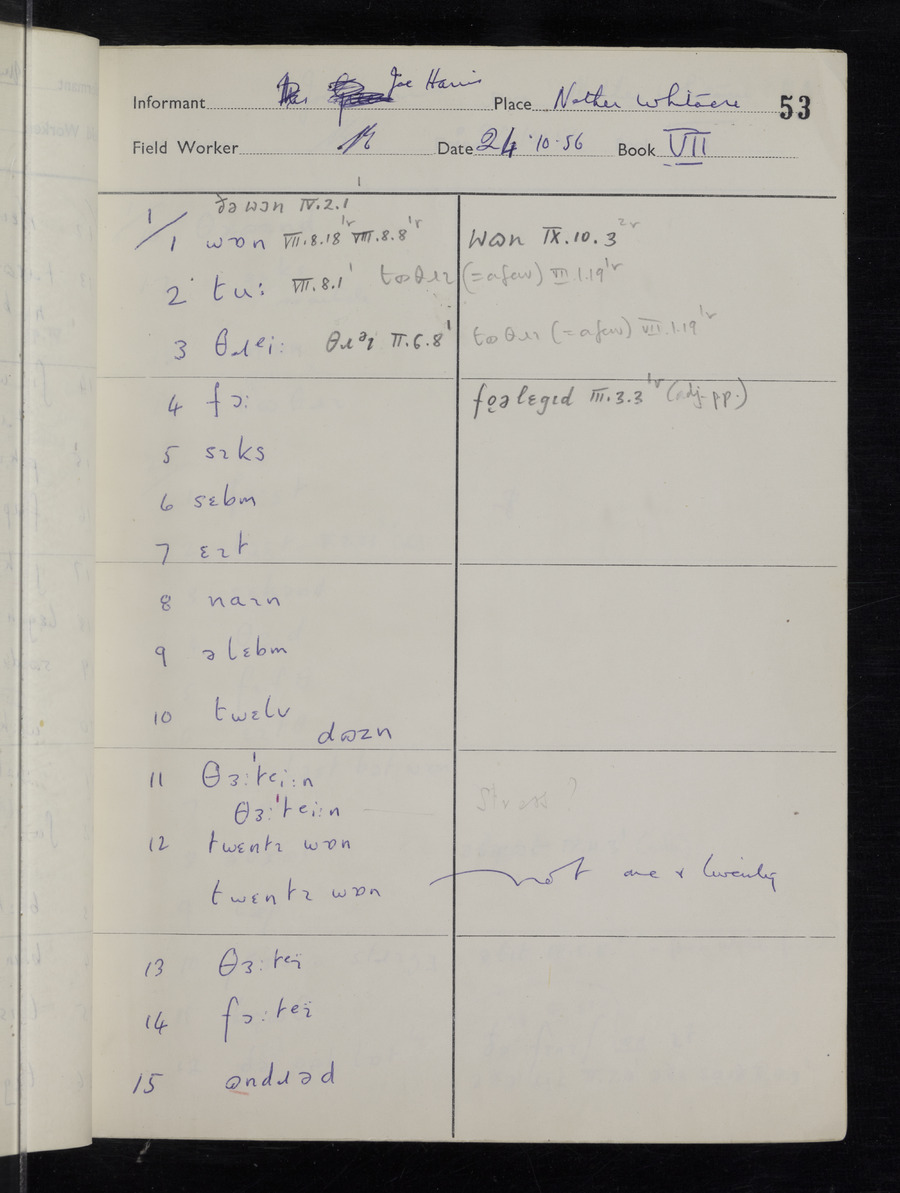 Informant Joe Harris Place Nether Whitacre 53
Field Worker Date 24·10·56 Book VII
ðə wɔn IV.2.1
1/ 1 wɒn VII.8.18 ¹ʳ VIII.8.8 ¹ʳ wɷn IX.10.3 ²ʳ
2 tu: VII.8.1 ¹ tɷθɹɪ (=a few) VII.1.19 ¹ʳ
3 θɹei: θɹəɪ II.6.8 ¹ tɷθɹɪ (=a few) VII.1.19 ¹ʳ
4 fɔ: fo̜əlɛgɪd III.3.3 ¹ʳ (adj-pp.)
5 sɪks
6 sɛbm
7 ɛɪt
8 naɪn
9 əlɛbm
10 twɛlv
dɷzn
11 θɜ:ˈtei:n
θɜ:ˈtei:n Stress?
12 twɛntɪ wɒn
twɛntɪ wɒn not one & twenty
13 θɜ:teï
14 fɔ:teï
15 ɷndɹəd